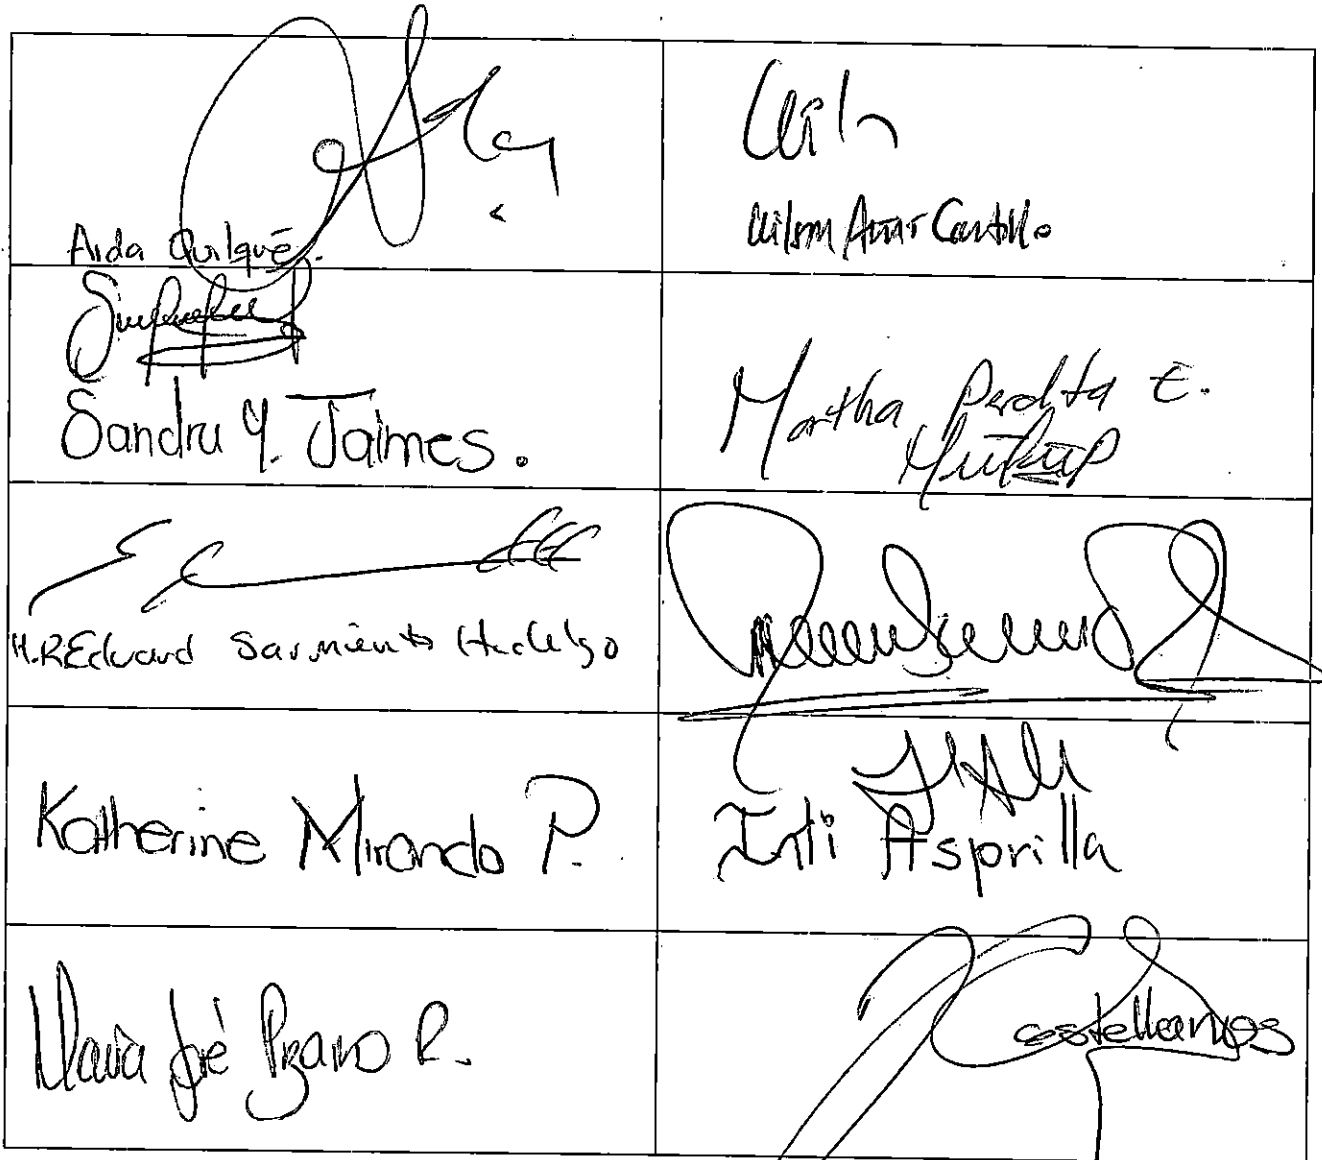 Aida Quilqué.
Wilson Arias Castillo
Sandra Y. Jaimes.
Martha Peralta E.
H.R Eduard Sarmiento Hidalgo
Katherine Miranda P.
Inti Asprilla
María José Pizarro R.
Castellanos